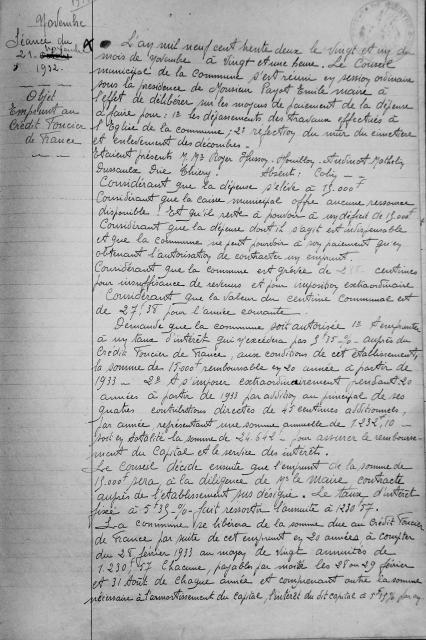 Novembre
Séance du
21 novembre
1932.
Objet
Emprunt au
Crédit Foncier
de France
L'an mil neuf cent trente deux le vingt et un du
mois de Novembre à vingt et une heure. Le Conseil
municipal de la commune s'est réuni en session ordinaire
sous la présidence de Monsieur Payot Emile maire à
l'effet de délibérer sur les moyens de paiement de la dépense
à faire pour : 1º les dépassements des travaux effectués à
l'Eglise de la commune ; 2º réfection du mur du cimetière
et Enlèvement des décombres.
Etaient présents M.Mrs Roger
Absent : Colin
Considérant que la dépense s'élève à 15.000f
Considérant que la caisse municipal offre aucune ressource
disponible. Et qu'il reste à pourvoir à un déficit de 15.000f
Considérant que la dépense dont il s'agit est indispensable
et que la commune ne peut pourvoir à son paiement qu'en
obtenant l'autorisation de contracter un emprunt.
Considérant que la commune est grevée de centimes
pour insuffisance de revenus et pour imposition extraordinaire
Considérant que la valeur du centime communal est
de 27f38 pour l'année courante
Demande que la commune soit autorisée 1º à emprunter
à un taux d'intérêt qui n'excédera pas auprès du
Crédit Foncier de France, aux conditions de cet établissement,
la somme de 15000f remboursable en 20 année à partir de
1933 - 2º à s'imposer extraordinairement pendant 20
années à partir de 1933 par addition au principal de ses
quatres contributions directes de 45 centimes additionnels,
par année représentant une somme annuelle de 1.232f,10
soit en totalité la somme de 24.642f pour assurer le rembourse-
ment du Capital et le service des intérêts.
Le Conseil décide ensuite que l'emprunt de la somme de
15.000f sera, à la diligence de Mr le Maire contracté
auprès de l'établissement sus désigné. Le taux d'intérêt
fixé à fait ressortir l'annuité à 1230f57.
La commune se libèrera de la somme due au Crédit Foncier
de France par suite de cet emprunt en 20 années, à compter
du 28 février 1933 au moyen de vingt annuités de
1.230f,57 chacune, payables par moitié les 28 ou 29 février
et 31 Août de chaque année et comprenant outre la somme
nécessaire à l'amortissement du capital, l'intérêt du dit capital à